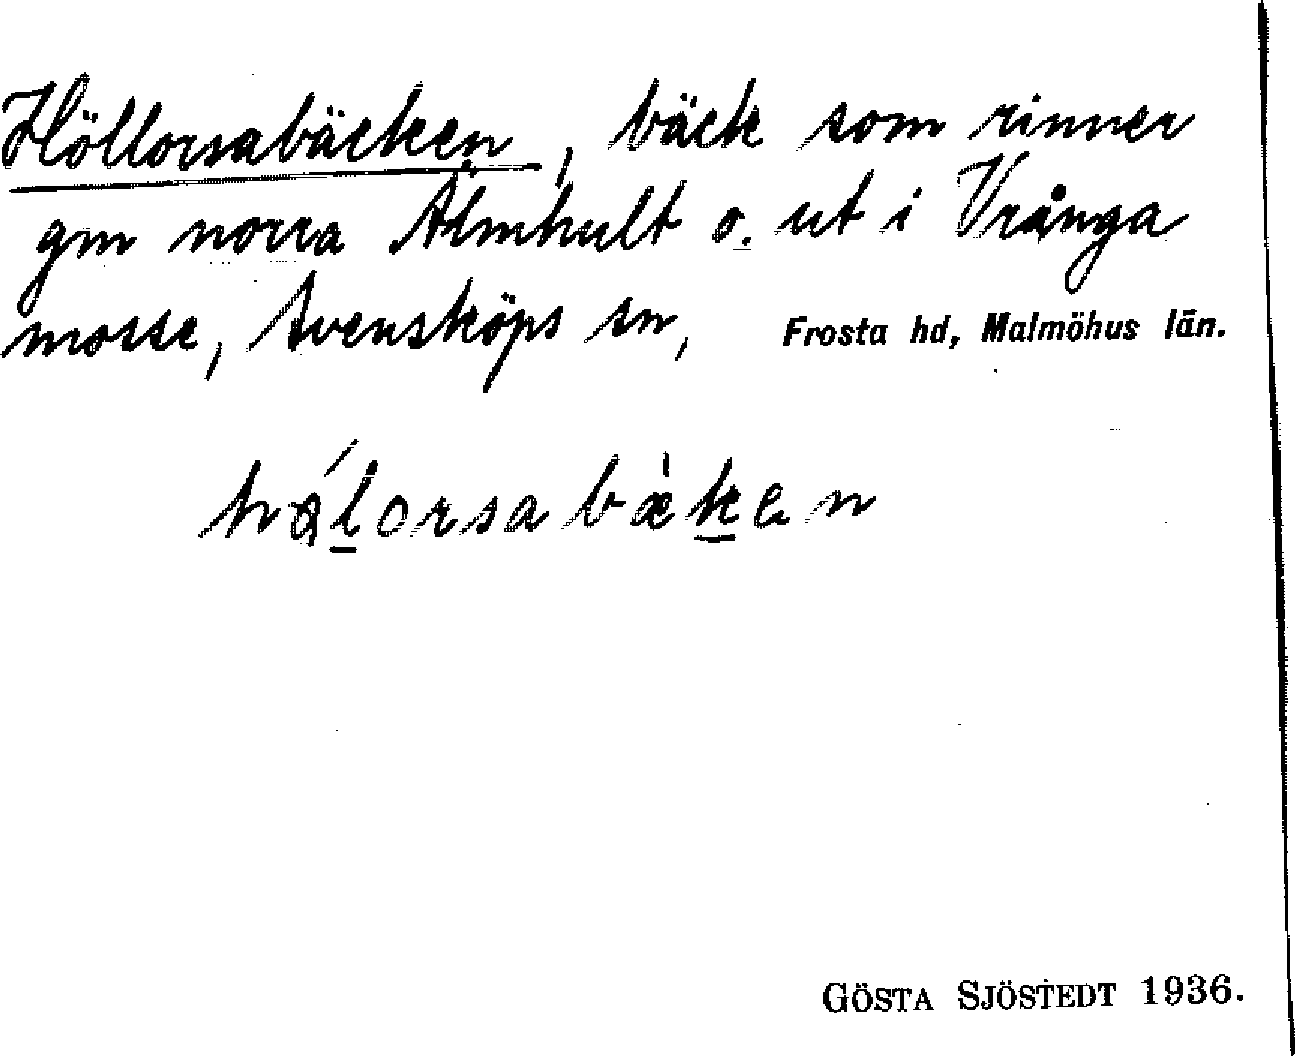 Höllorsabäcken, bäck som rinner
gm norra Älmhult o. ut i Vrånga
mosse, Svensköps sn, Frosta hd, Malmöhus län.
GÖSTA SJÖSTEDT 1936.